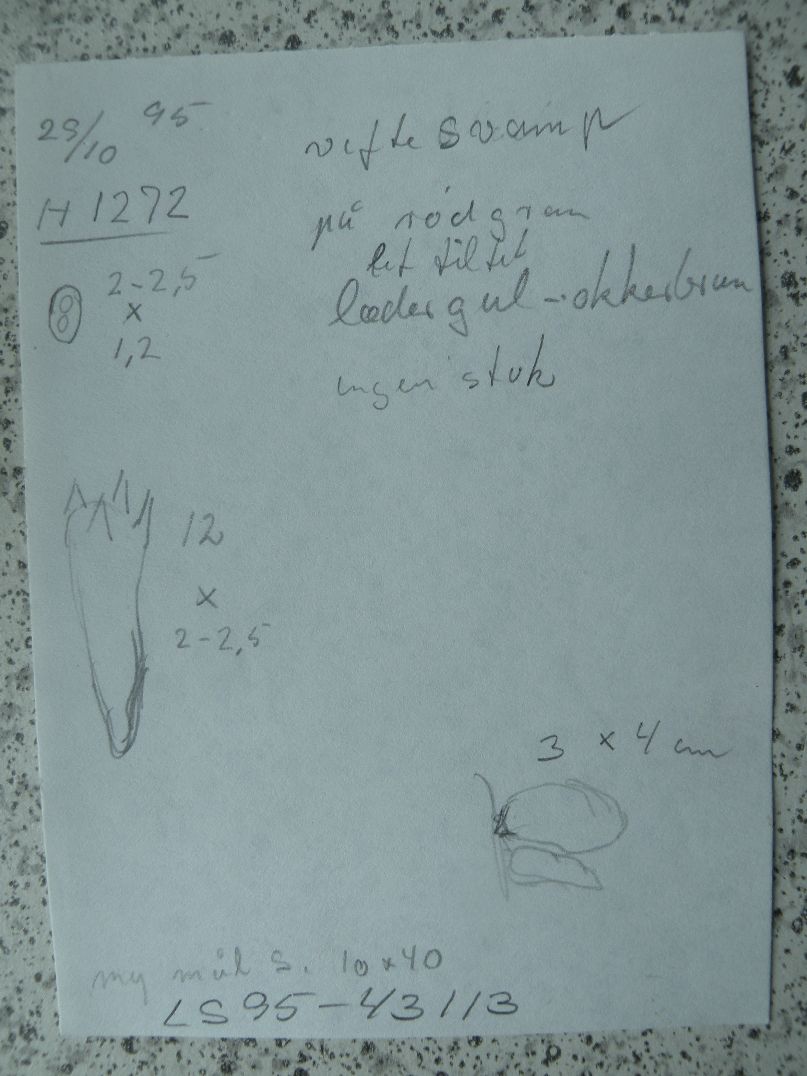 29/10 95
viftesvamp
H 1272
på rødgran
let filtet
2-2,5
x
1,2
8
lædergul - okkerbrun
ingen stok
12
x
2-2,5
3 x 4 cm
my mål s. 10x40
LS95-43113